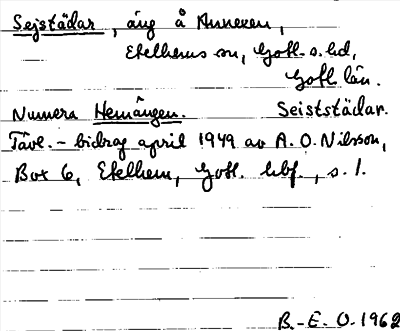 Sejstädar, äng å Annexen,
Etelhems sn, Gotl. s. hd,
Gotl. län.
Numera Hemängen. Seiststädar.
Tävl.- bidrag april 1949 av A. O. Nilsson,
Box 6, Etelhem, Gotl. hbf., s. 1.
B.-E. O. 1962